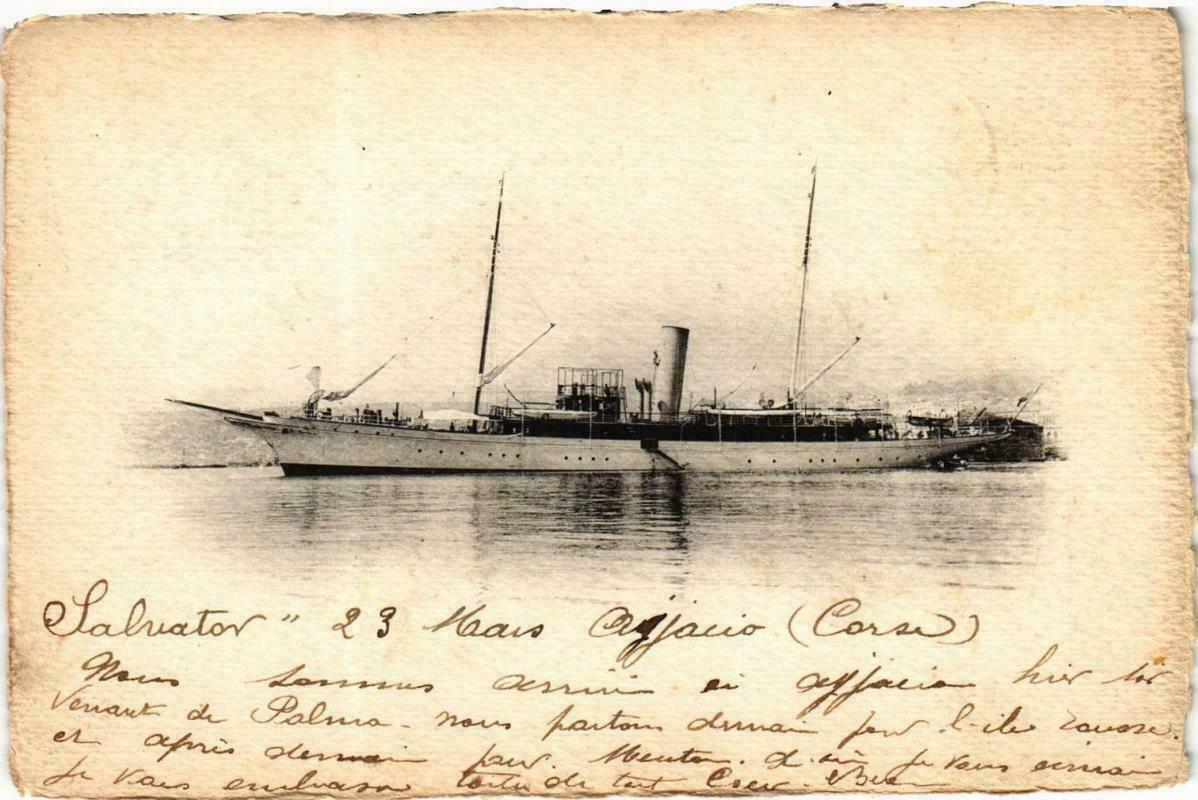 Salvator" 23 Mars Ajjacio (Corse)
Nous sommes arrivé ajjacio hier soir
Venant de Palma - nous partons demain pour l'ile rousse.
et après demain pour Menton. je vous
Je vous embrasse toutes de tout Coeur.